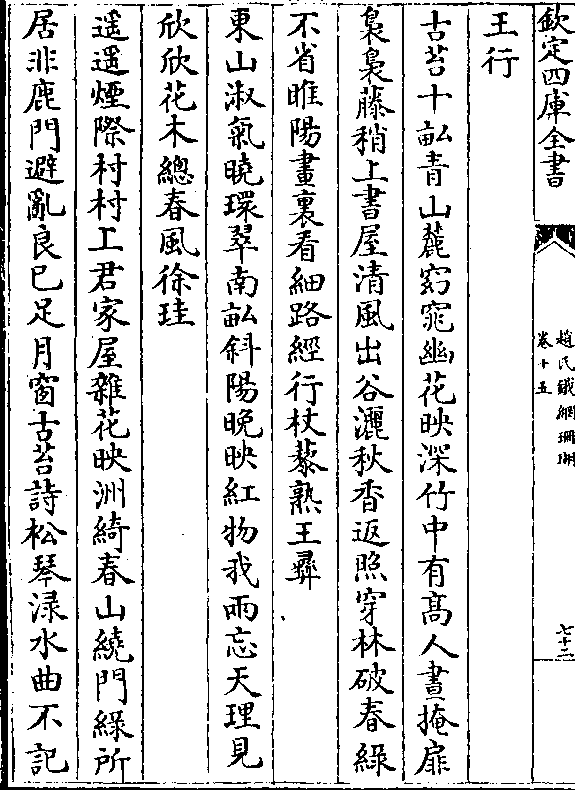 欽定四庫全書
趙氏鐵網珊瑚
卷十五
七十二
王行
古苔十畝青山麓窈窕幽花映深竹中有髙人晝掩扉
裊裊藤稍上書屋清風出谷灑秋香返照穿林破春綠
不省睢陽畫裏看細路經行杖藜熟王彞
東山淑氣曉環翠南畝斜陽晚映紅物我兩忘天理見
欣欣花木總春風徐珪
遥遥煙際村村工君家屋雜花映洲綺春山繞門綠所
居非鹿門避亂良已足月窗古苔詩松琴渌水曲不記